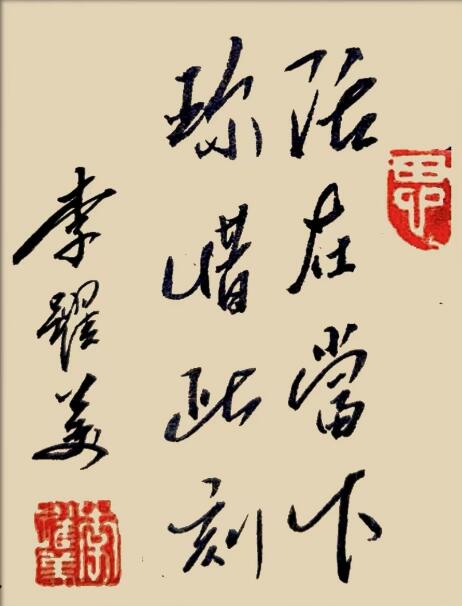 活在當下
珍惜此刻
李躍美